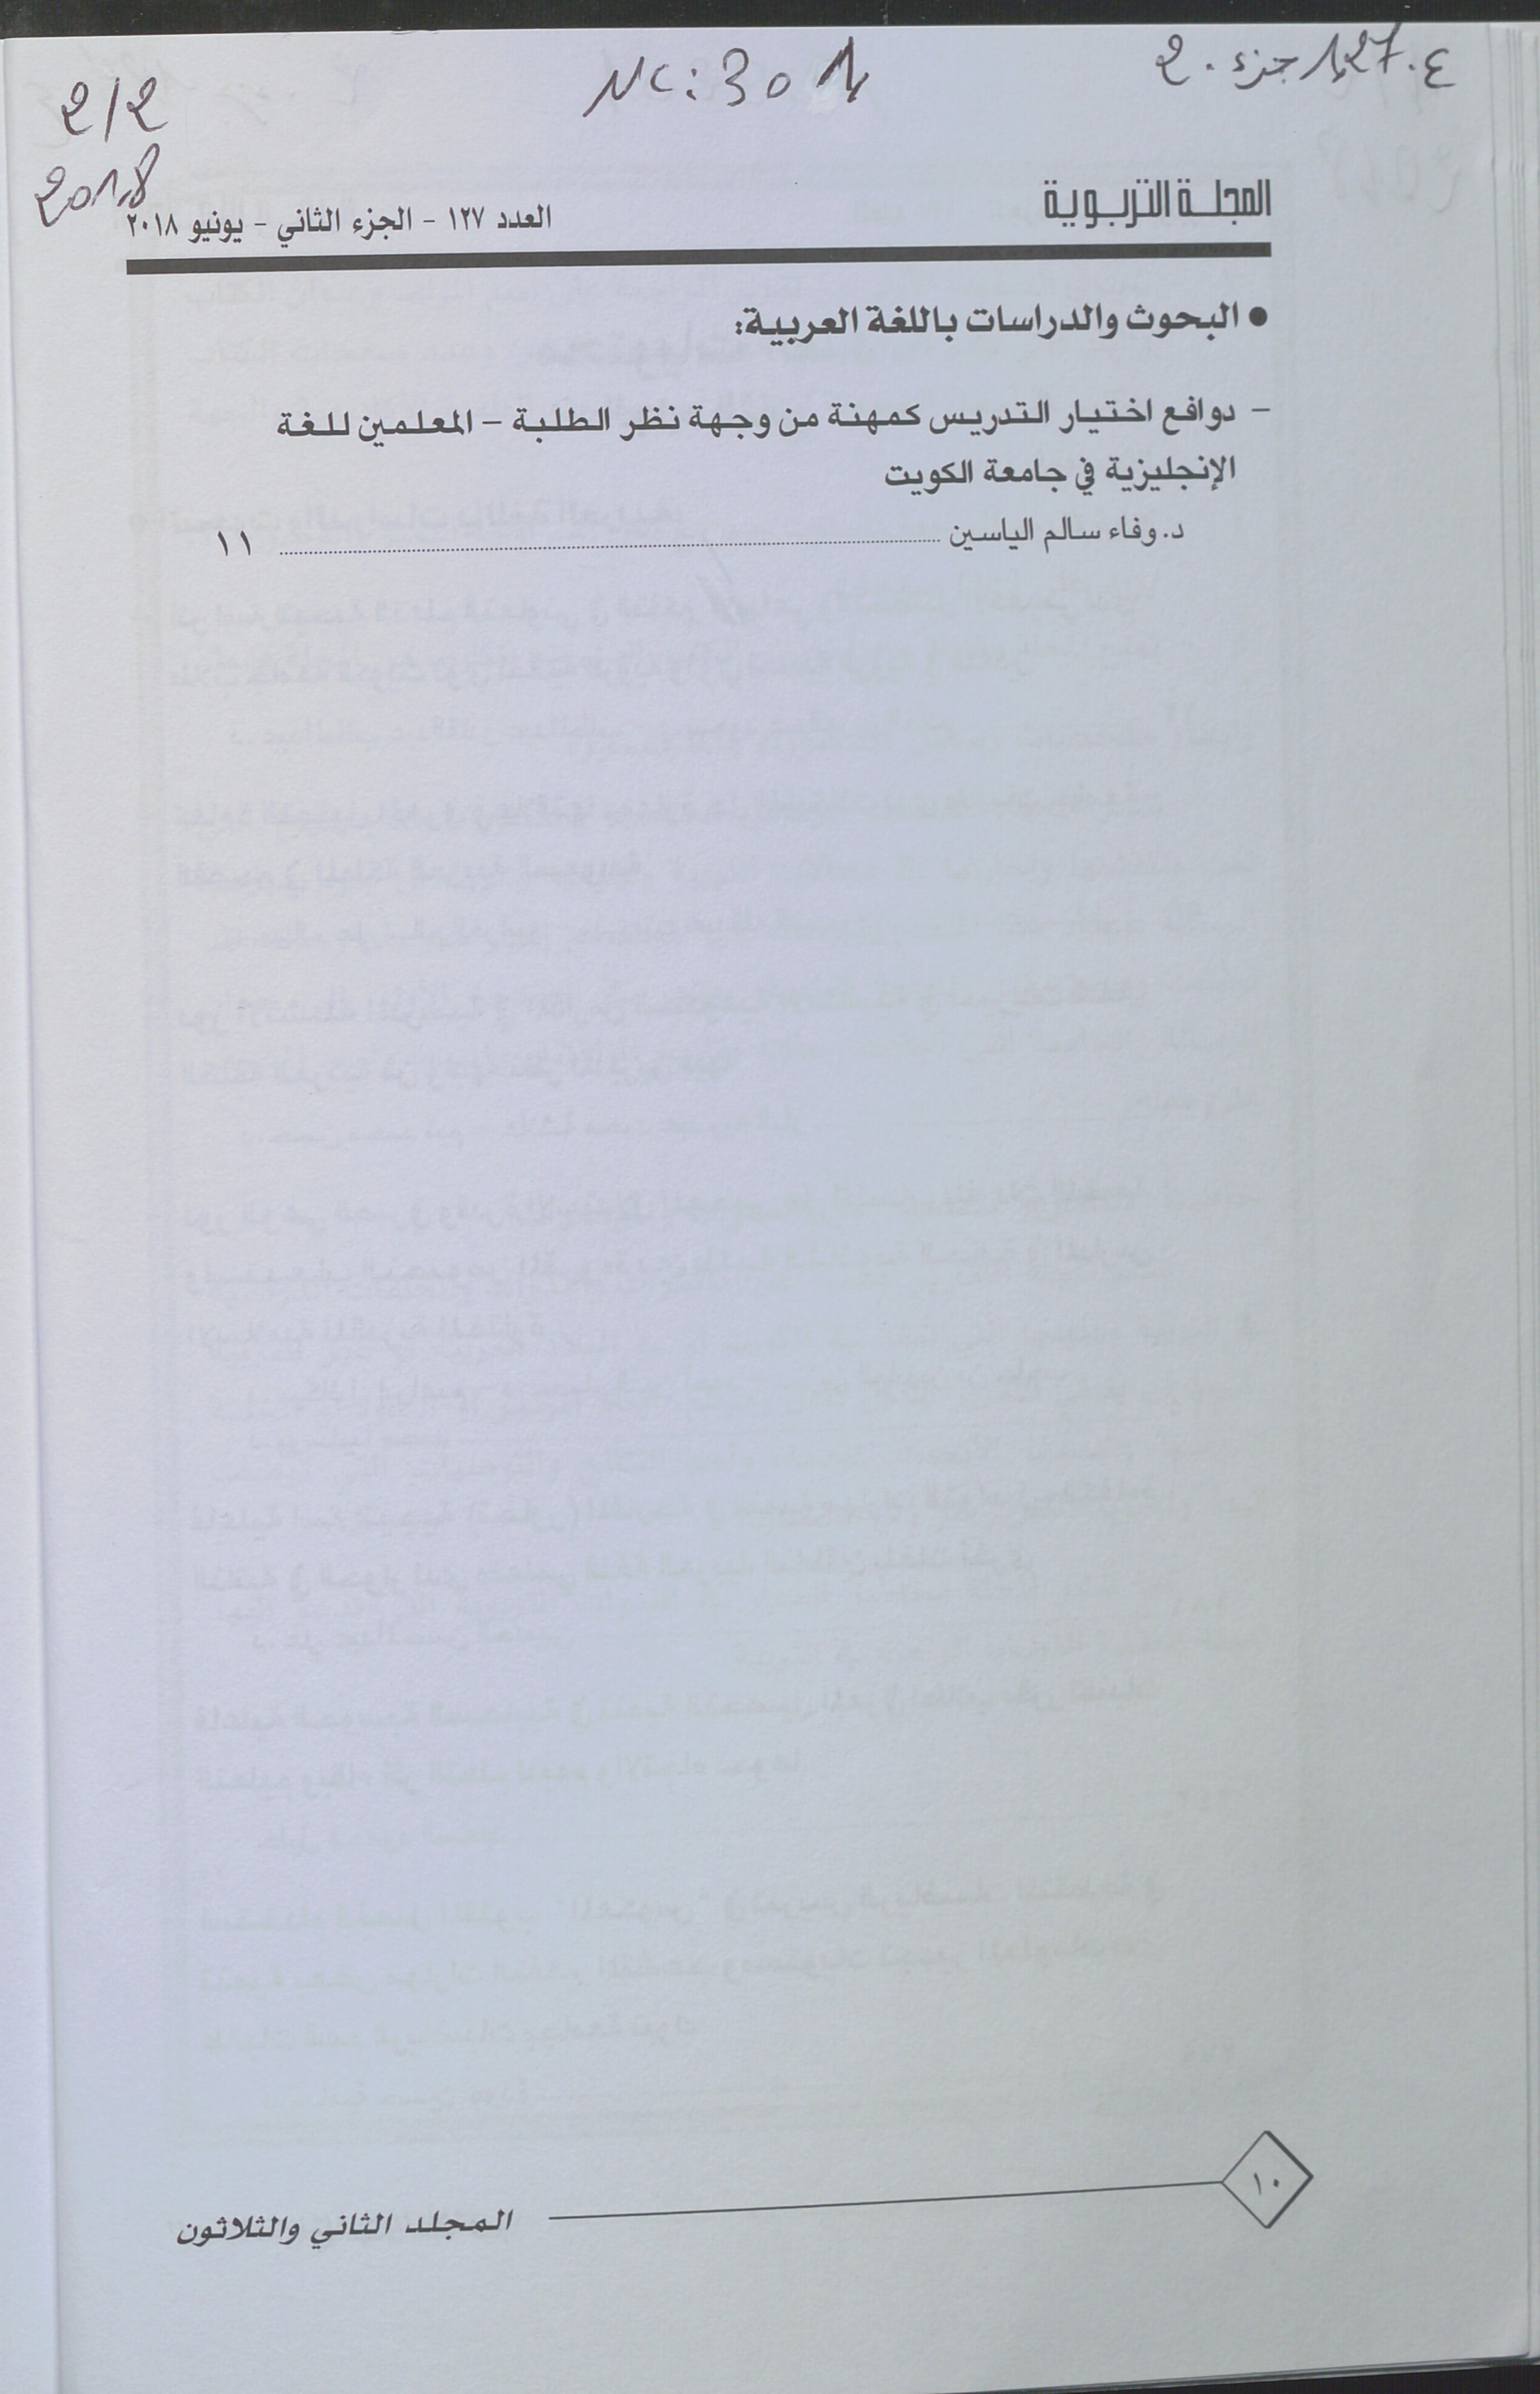 ع. 127 جزء. 2
NC: 301
2/2
2018
المجلة التربوية
العدد ١٢٧ - الجزء الثاني - يونيو ٢٠١٨
● البحوث والدراسات باللغة العربية:
- دوافع اختيار التدريس كمهنة من وجهة نظر الطلبة - المعلمين للغة
الإنجليزية في جامعة الكويت
د. وفاء سالم الياسين ........................ ١١
١٠
المجلد الثاني والثلاثون